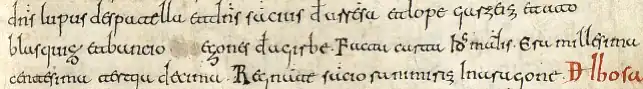 dns lupus despatella & dns sacius dussesa & lope garzeiz & tato
blasquiz & bancio ezones d agirbe. Facta carta Ids martis. Era millesima
centesima terca decima. Regnante sacio ranimiriz Inaragone. D Ibosa